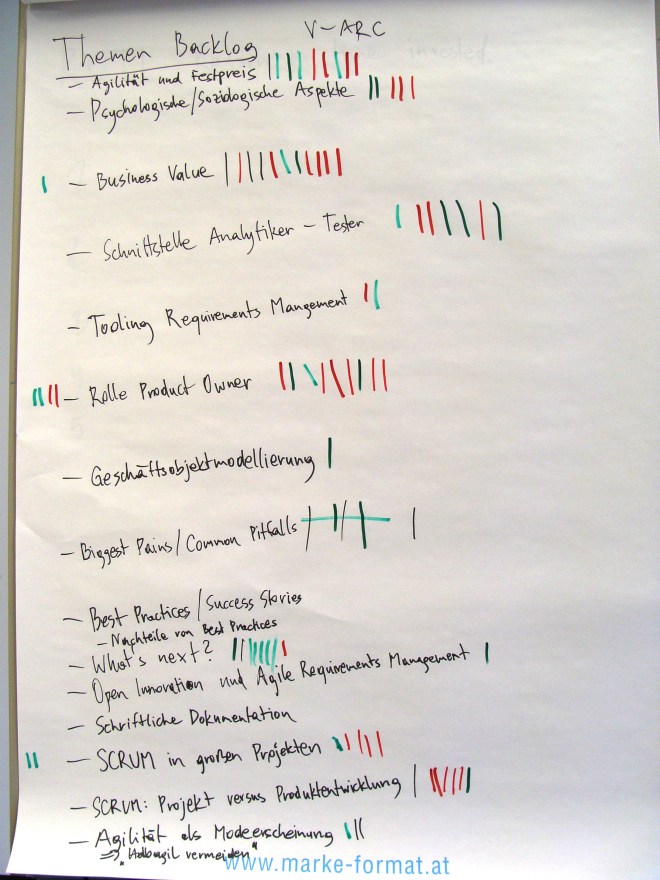 V-ARC
Themen Backlog
- Agilität und Festpreis
- Psychologische/Soziologische Aspekte
- Business Value
- Schnittstelle Analytiker - Tester
- Tooling Requirements Mangement
- Rolle Product Owner
- Geschäftsobjektmodellierung
- Biggest Pains/Common Pitfalls
- Best Practices/Success Stories
- Nachteile von Best Practices
- What's next?
- Open Innovation und Agile Requirements Management
- Schriftliche Dokumentation
- SCRUM in großen Projekten
- SCRUM: Projekt versus Produktentwicklung
- Agilität als Modeerscheinung
=> "Halbagil vermeiden"
www.marke-format.at